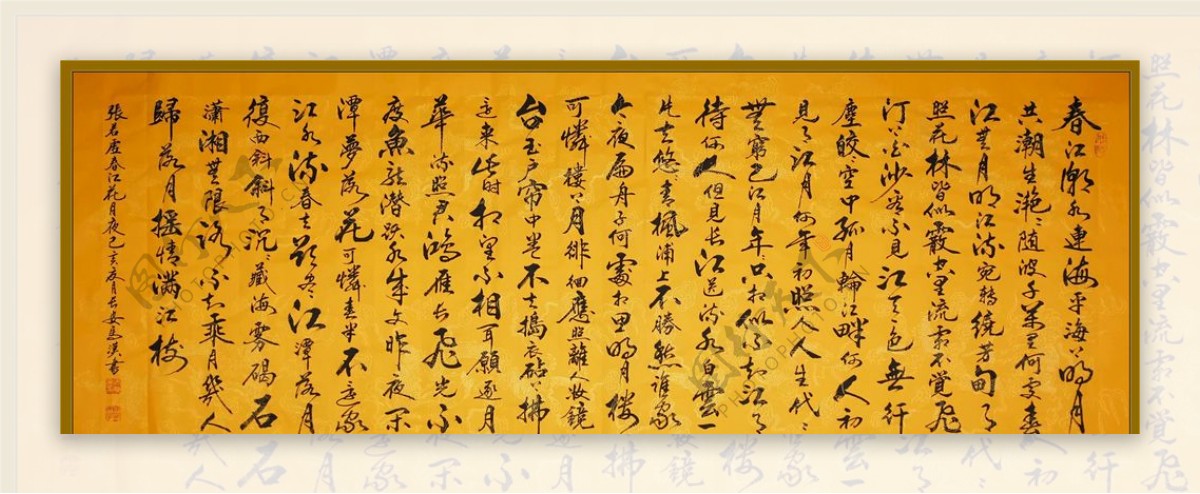 春江潮水連海平海上明月
共潮生灔灔随波千萬里何處春
江無月明江流宛轉繞芳甸月
照花林皆似霰空里流霜不覺飛
汀上白沙看不見江天一色無纤
塵皎皎空中孤月輪江畔何人初
見月江月何年初照人人生代代
無窮已江月年年只相似不知江月
待何人但見長江送流水白雲一
片去悠悠青楓浦上不勝愁誰家
今夜扁舟子何處相思明月樓
可憐樓上月徘徊應照離人妝鏡
台玉户帘中卷不去搗衣砧上拂
還来此時相望不相聞願逐月
華流照君鴻雁長飛光不
度魚龍潛躍水成文昨夜閑
潭夢落花可憐春半不還家
江水流春去欲盡江潭落月
復西斜斜月沉沉藏海雾碣石
瀟湘無限路不知乘月幾人
歸落月摇情满江樹
張若虚春江花月夜己亥夏月长安